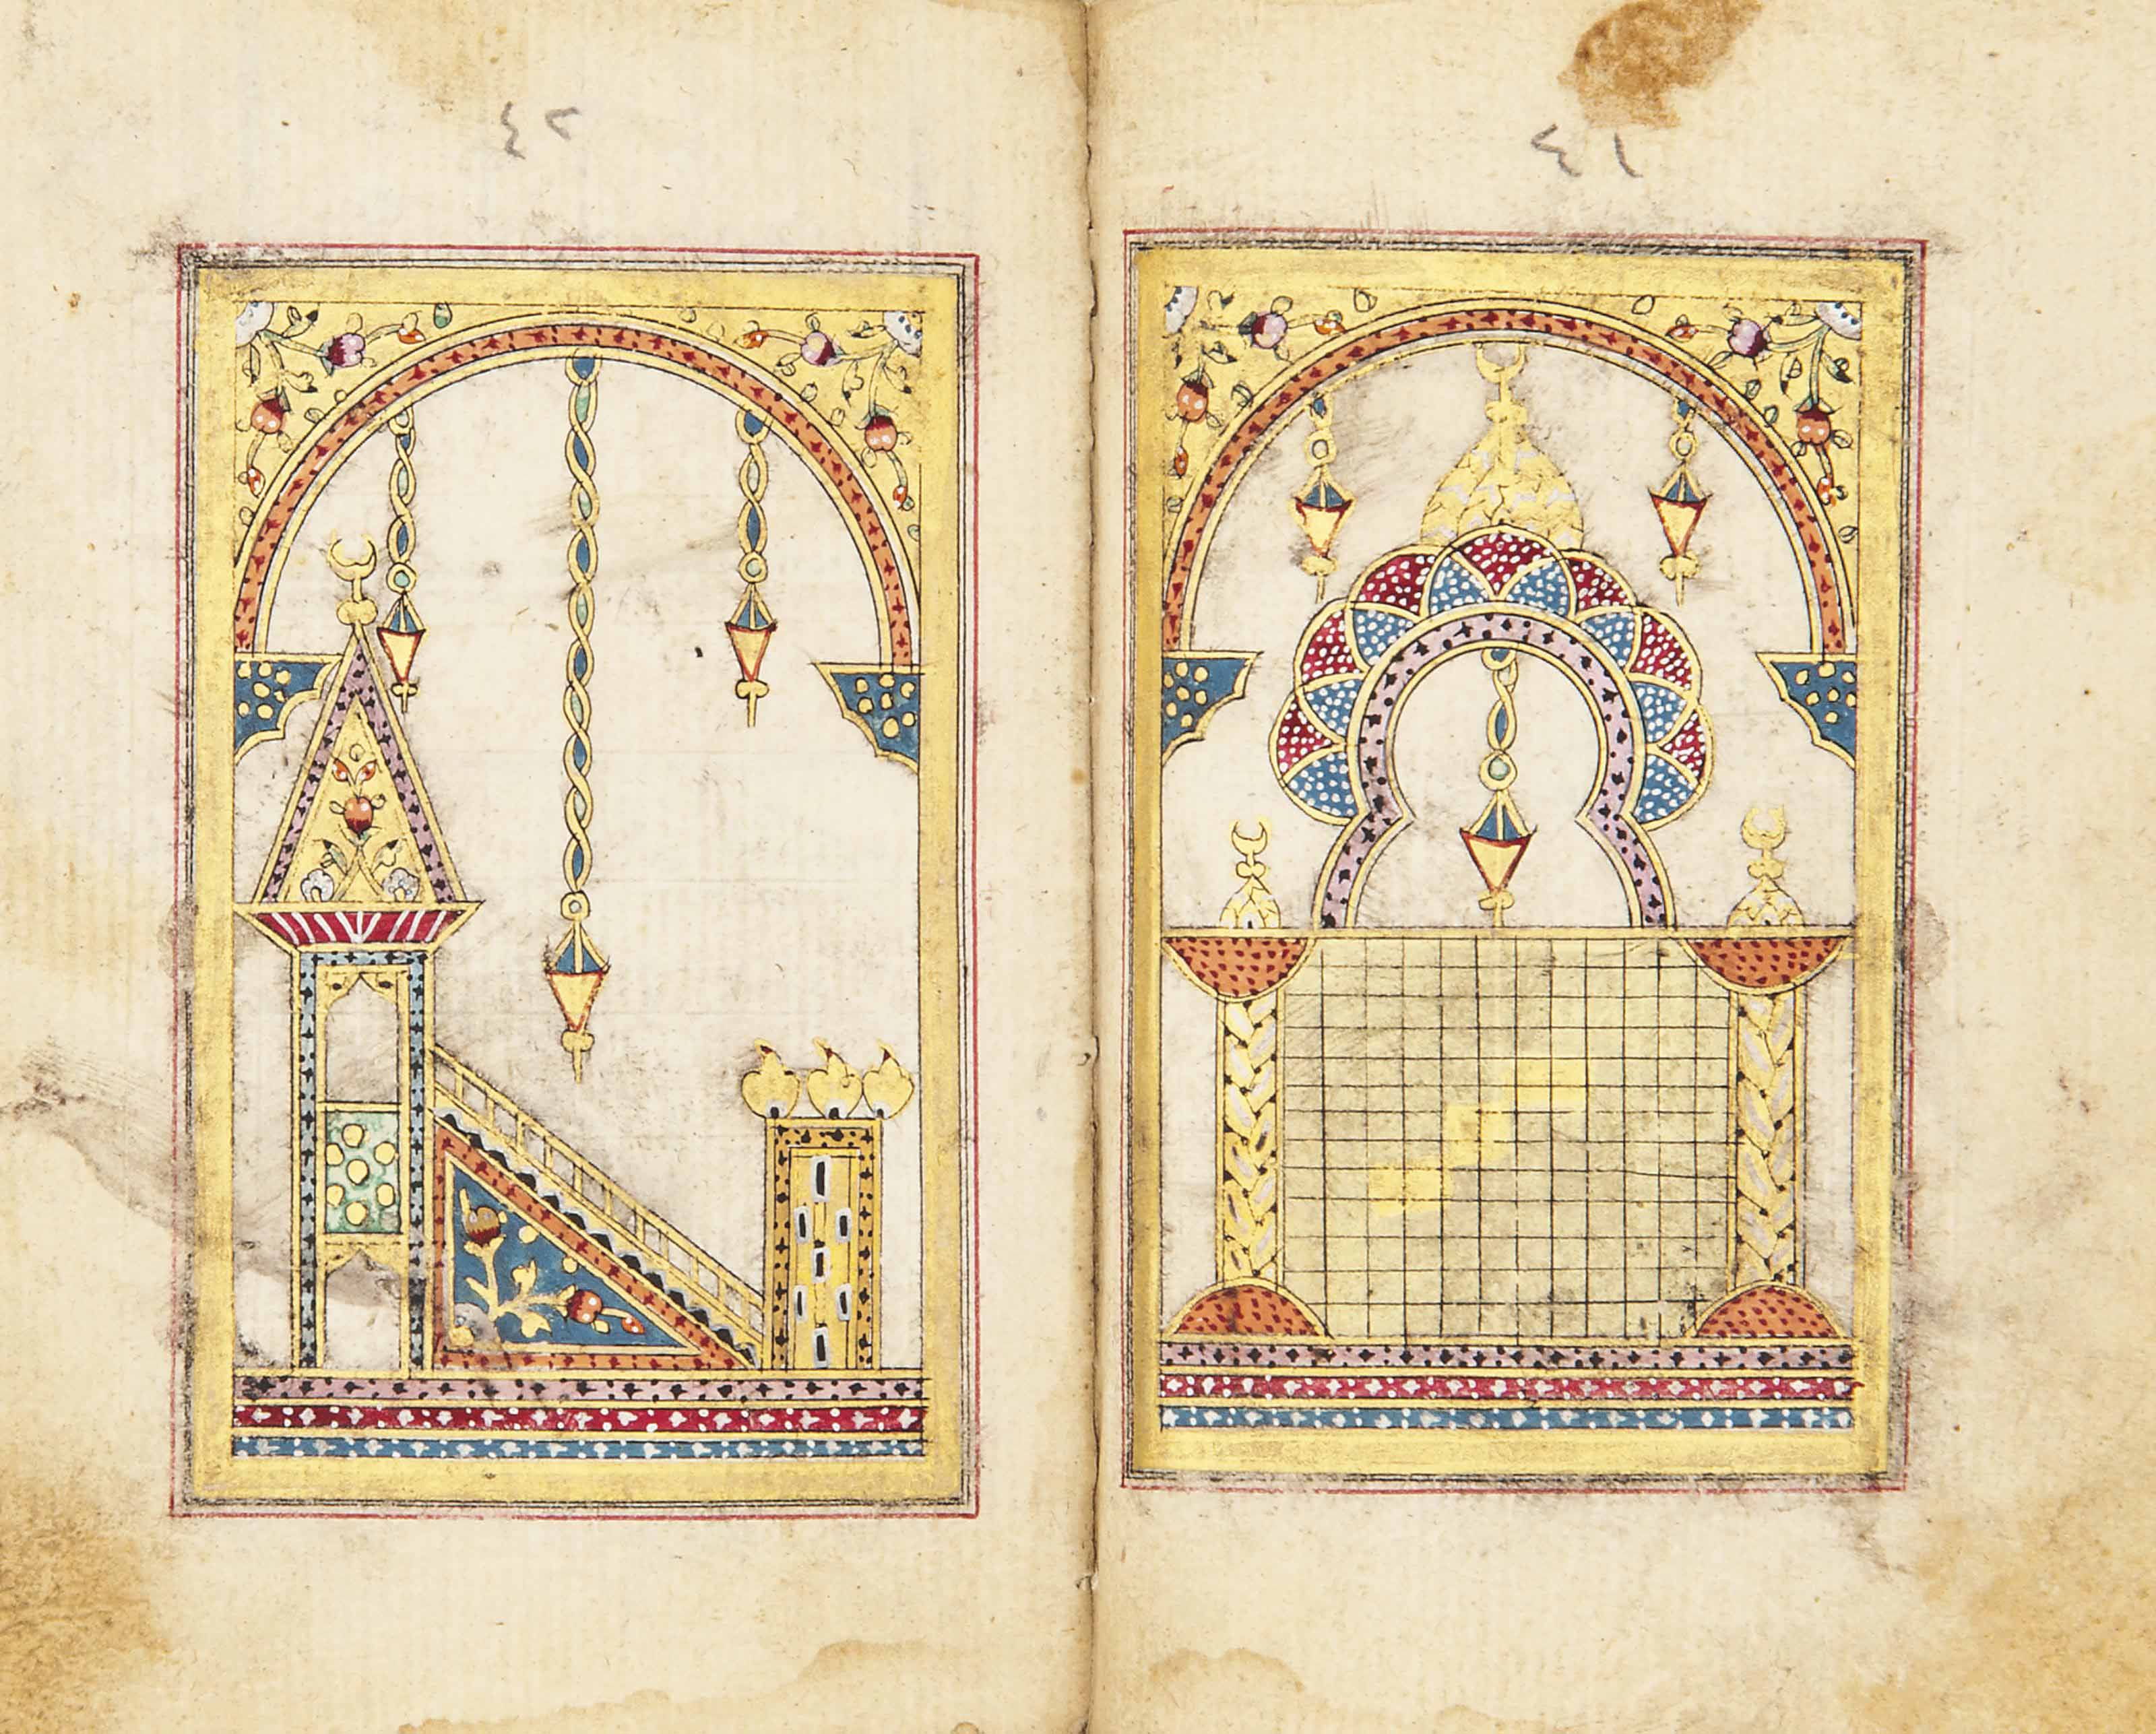 ٤١
٤٢